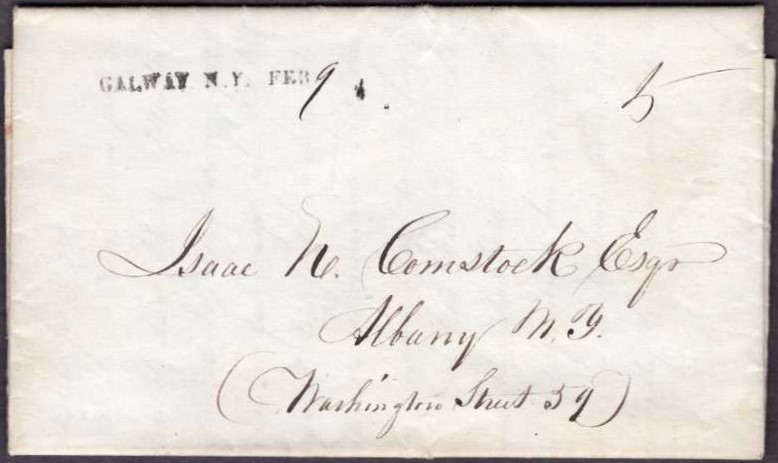 GALWAY N.Y. FEB. 9 5
Isaac N. Comstock Esqr
Albany N.Y.
(Washington Street 59)